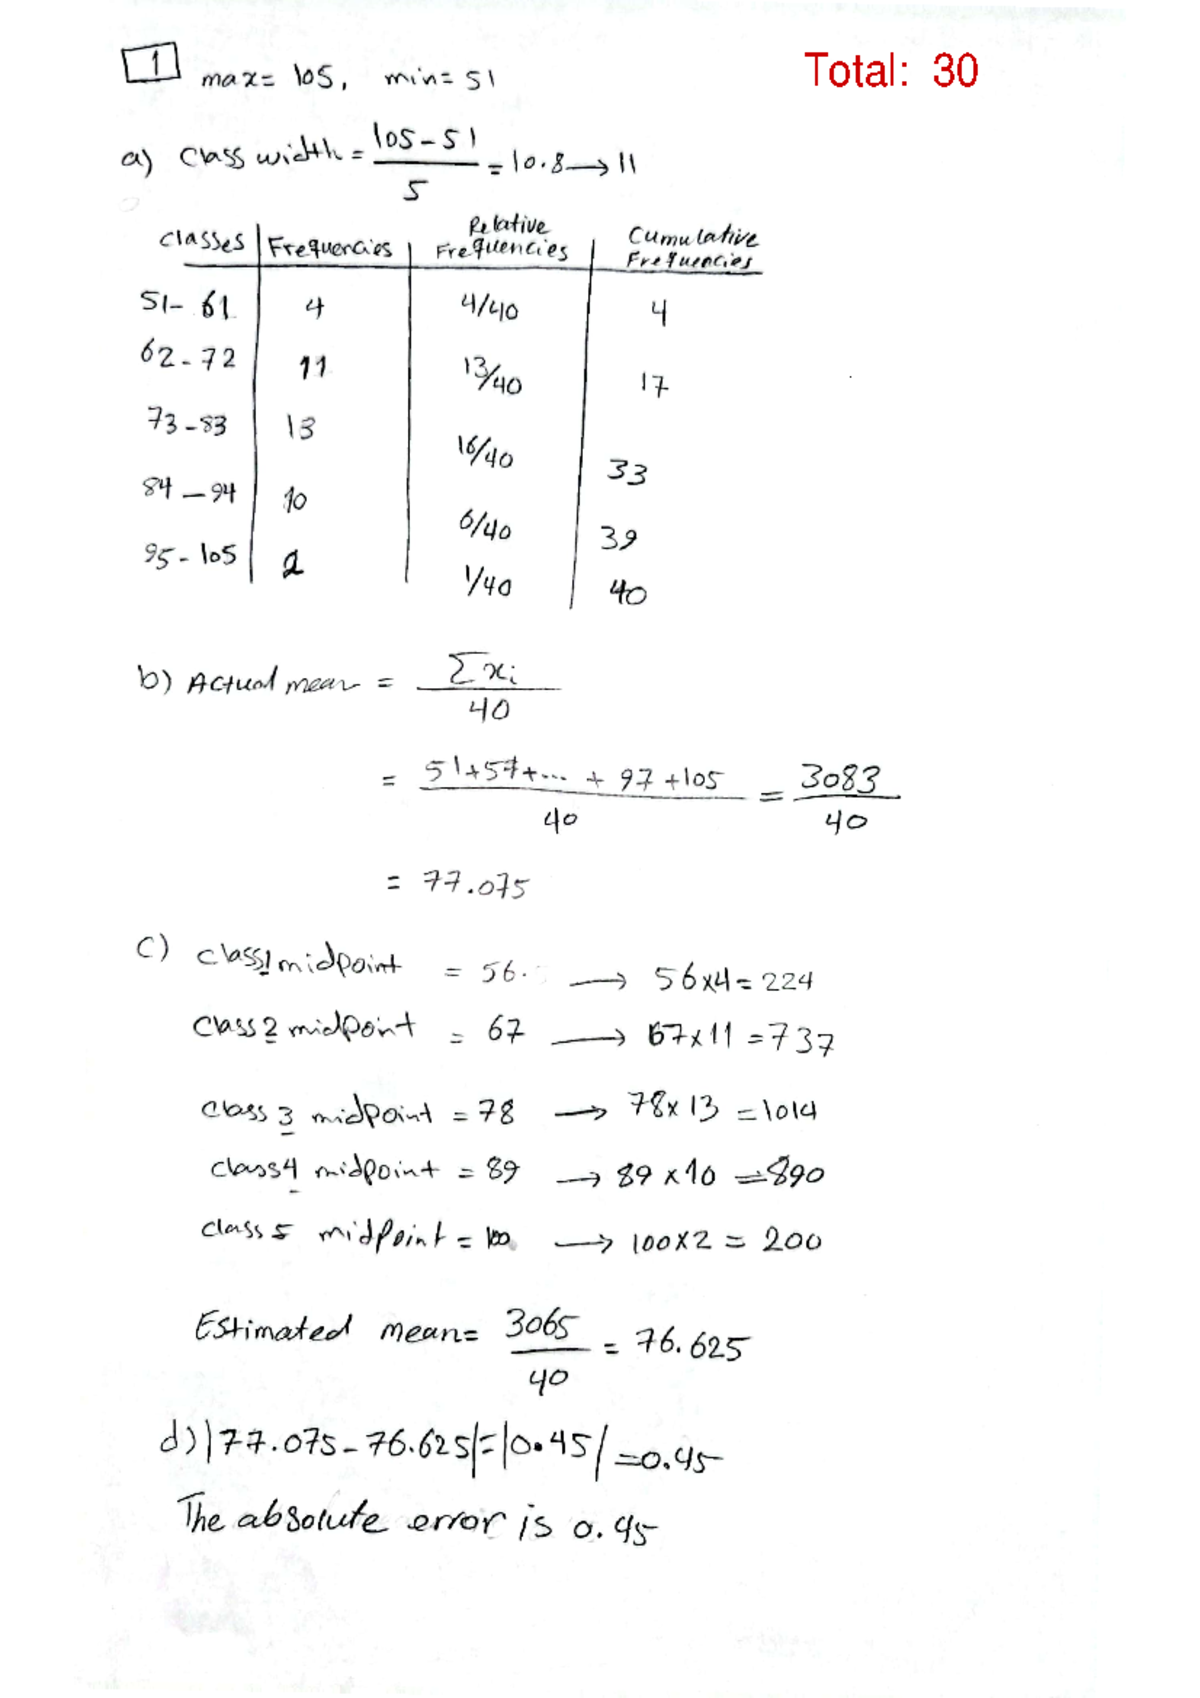 1 max= 105, min= 51
Total: 30
a) Class width = 105-51 / 5 = 10.8 → 11
Classes | Frequencies | Relative Frequencies | Cumulative Frequencies
51- 61 | 4 | 4/40 | 4
62-72 | 11 | 13/40 | 17
73-83 | 13 | 16/40 | 33
84-94 | 10 | 6/40 | 39
95-105 | 2 | 1/40 | 40
b) Actual mean = Σxi / 40
= 51+57+... + 97+105 / 40 = 3083 / 40
= 77.075
c) class1 midpoint = 56. → 56x4= 224
Class 2 midpoint = 67 → 67x11 =737
class 3 midpoint = 78 → 78x 13 =1014
class4 midpoint = 89 → 89 x10 =890
class 5 midpoint = 100 → 100x2 = 200
Estimated mean= 3065 / 40 = 76.625
d) |77.075-76.625|=|0.45| =0.45
The absolute error is 0.45